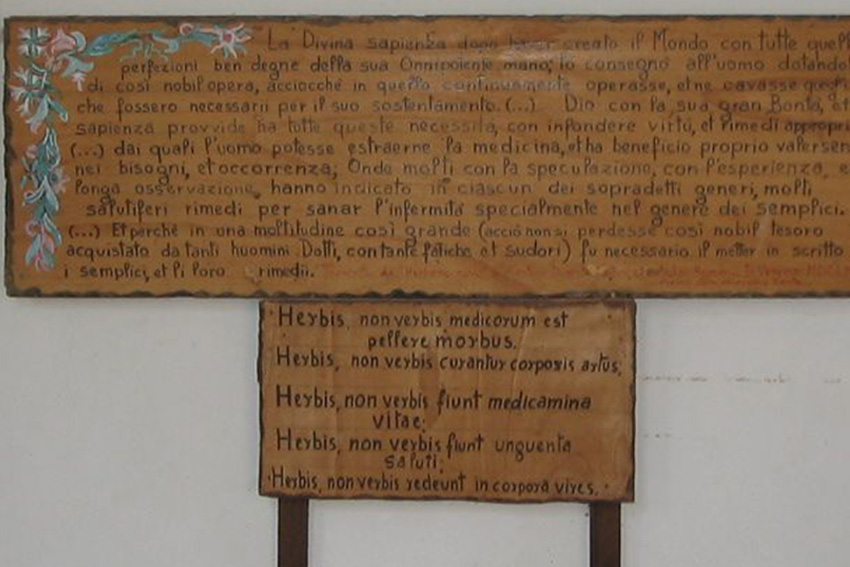 La Divina sapienza dopo haver creato il Mondo con tutte quell
perfezioni ben degne della sua Onnipotente mano; lo consegnò all'uomo dotandol
di così nobil opera, acciocché in quello continuamente operasse, et ne cavasse quelle
che fossero necessarii per il suo sostentamento. (...) Dio con la sua gran Bontà, et
sapienza provvide ha tutte queste necessità, con infondere virtù, et rimedi appropri
(...) dai quali l'uomo potesse estraerne la medicina, et ha beneficio proprio valersen
nei bisogni, et occorrenza; Onde molti con la speculazione, con l'esperienza, e
longa osservazione, hanno indicato in ciascun' dei sopradetti generi, molti
salutiferi rimedi per sanar l'infermità specialmente nel genere dei semplici.
(...) Et perché in una moltitudine così grande (acciò non si perdesse così nobil tesoro
acquistato da tanti huomini Dotti, con tante fatiche et sudori) fu necessario il metter in scritto
i semplici, et li loro rimedii.
Herbis, non verbis medicorum est
pellere morbus.
Herbis, non verbis curantur corporis artus;
Herbis, non verbis fiunt medicamina
vitae;
Herbis, non verbis fiunt unguenta
saluti;
Herbis, non verbis redeunt in corpora vires.